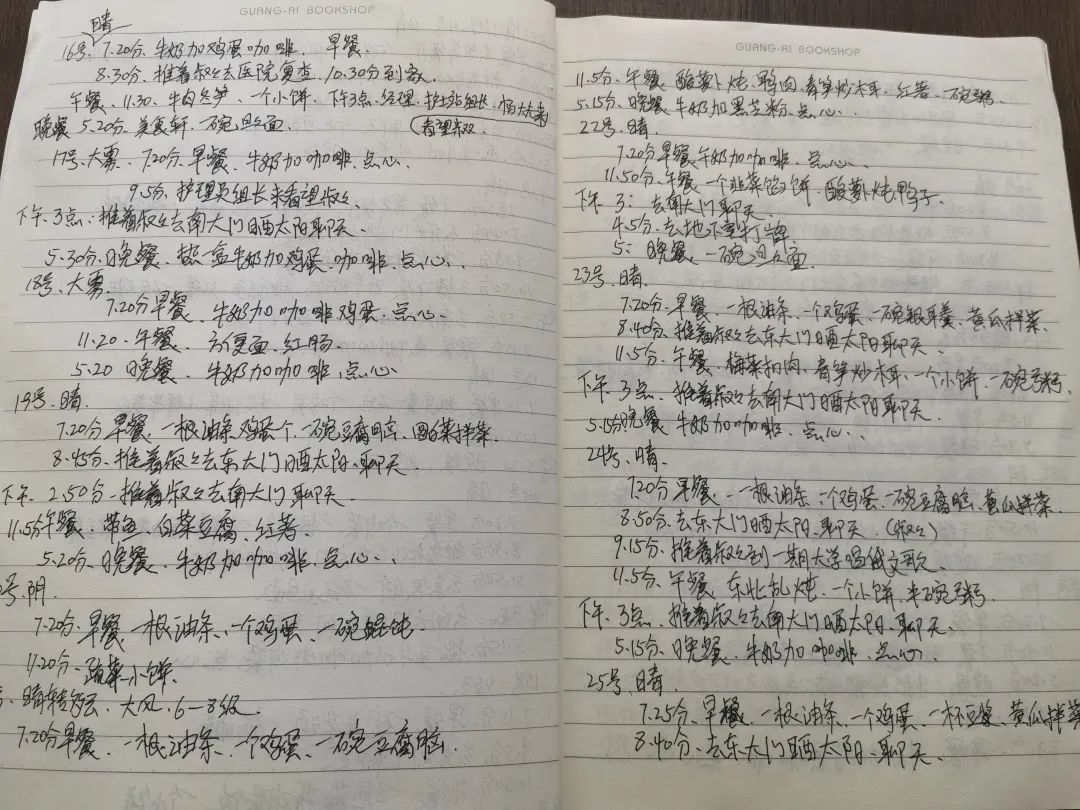 GUANG-AI BOOKSHOP
晴
16号、7.20分、牛奶加鸡蛋咖啡、早餐、
8.30分、推着叔叔去医院复查、10.30分到家、
午餐、11.30、牛肉冬笋、一个小饼、下午3点、经理、护士站组长、杨大夫来
晚餐 5.20分、美食轩、一碗旦面、(看望叔、
17号、大雾、7.20分、早餐、牛奶加咖啡、点心、
9.5分、护理员组长来看望叔叔、
下午、3点:推着叔叔去南大门晒太阳聊天、
5.30分、晚餐、热一盒牛奶加鸡蛋、咖啡、点心、、
18号、大雾、
7.20分早餐、牛奶加咖啡鸡蛋、点心、
11.20、午餐、方便面、红肠、
5.20 晚餐、牛奶加咖啡、点心、
19号、晴、
7.20分早餐、一根油条、鸡蛋个、一碗豆腐脑、菜拌菜
8.45分、推着叔叔去东大门晒太阳、聊天、
下午、2.50分、推着叔叔去南大门、聊天、
11.5分午餐、带鱼、白菜豆腐、红薯、
5.20分、晚餐、牛奶加咖啡、点心、、
号、阴、
7.20分、早餐、一根油条、一个鸡蛋、一碗馄饨、
11.20分、蔬菜小饼、
晴转多云、大风、6-8级、
7.20分早餐、一根油条、一个鸡蛋、一碗豆腐脑、
GUANG-AI BOOKSHOP
11.5分、午餐、酸萝卜炖、鸭肉、青笋炒木耳、红薯、一碗粥、
5.15分、晚餐、牛奶加黑芝粉、点心、、
22号、晴、
7.20分早餐、牛奶加咖啡、点心、
11.50分、午餐、一个韭菜馅饼、酸萝卜炖鸭子、
下午、3:去南大门聊天、
4.5分、去地下室打牌
5:晚餐、一碗旦面、
23号、晴、
7.20分、早餐、一根油条、一个鸡蛋、一碗银耳羹、黄瓜拌菜、
8.40分、推着叔叔去东大门晒太阳聊天、
11.5分、午餐、梅菜扣肉、青笋炒木耳、一个小饼、一碗粥、
下午、3点、推着叔叔去南大门晒太阳聊天、
5.15分晚餐、牛奶加咖啡、点心、、
24号、晴、
7.20分早餐、一根油条、一个鸡蛋、一碗豆腐脑、黄瓜拌菜、
8.50分、去东大门晒太阳、聊天、(叔叔)
9.15分、推着叔叔到一期大学唱俄文歌、
11.5分、午餐、东北乱炖、一个小饼、半碗粥、
下午、3点、推着叔叔去南大门晒太阳、聊天、
5.15分、晚餐、牛奶加咖啡、点心、
25号、晴、
7.25分、早餐、一根油条、一个鸡蛋、一杯豆浆、黄瓜拌菜
8.40分、去东大门晒太阳、聊天、